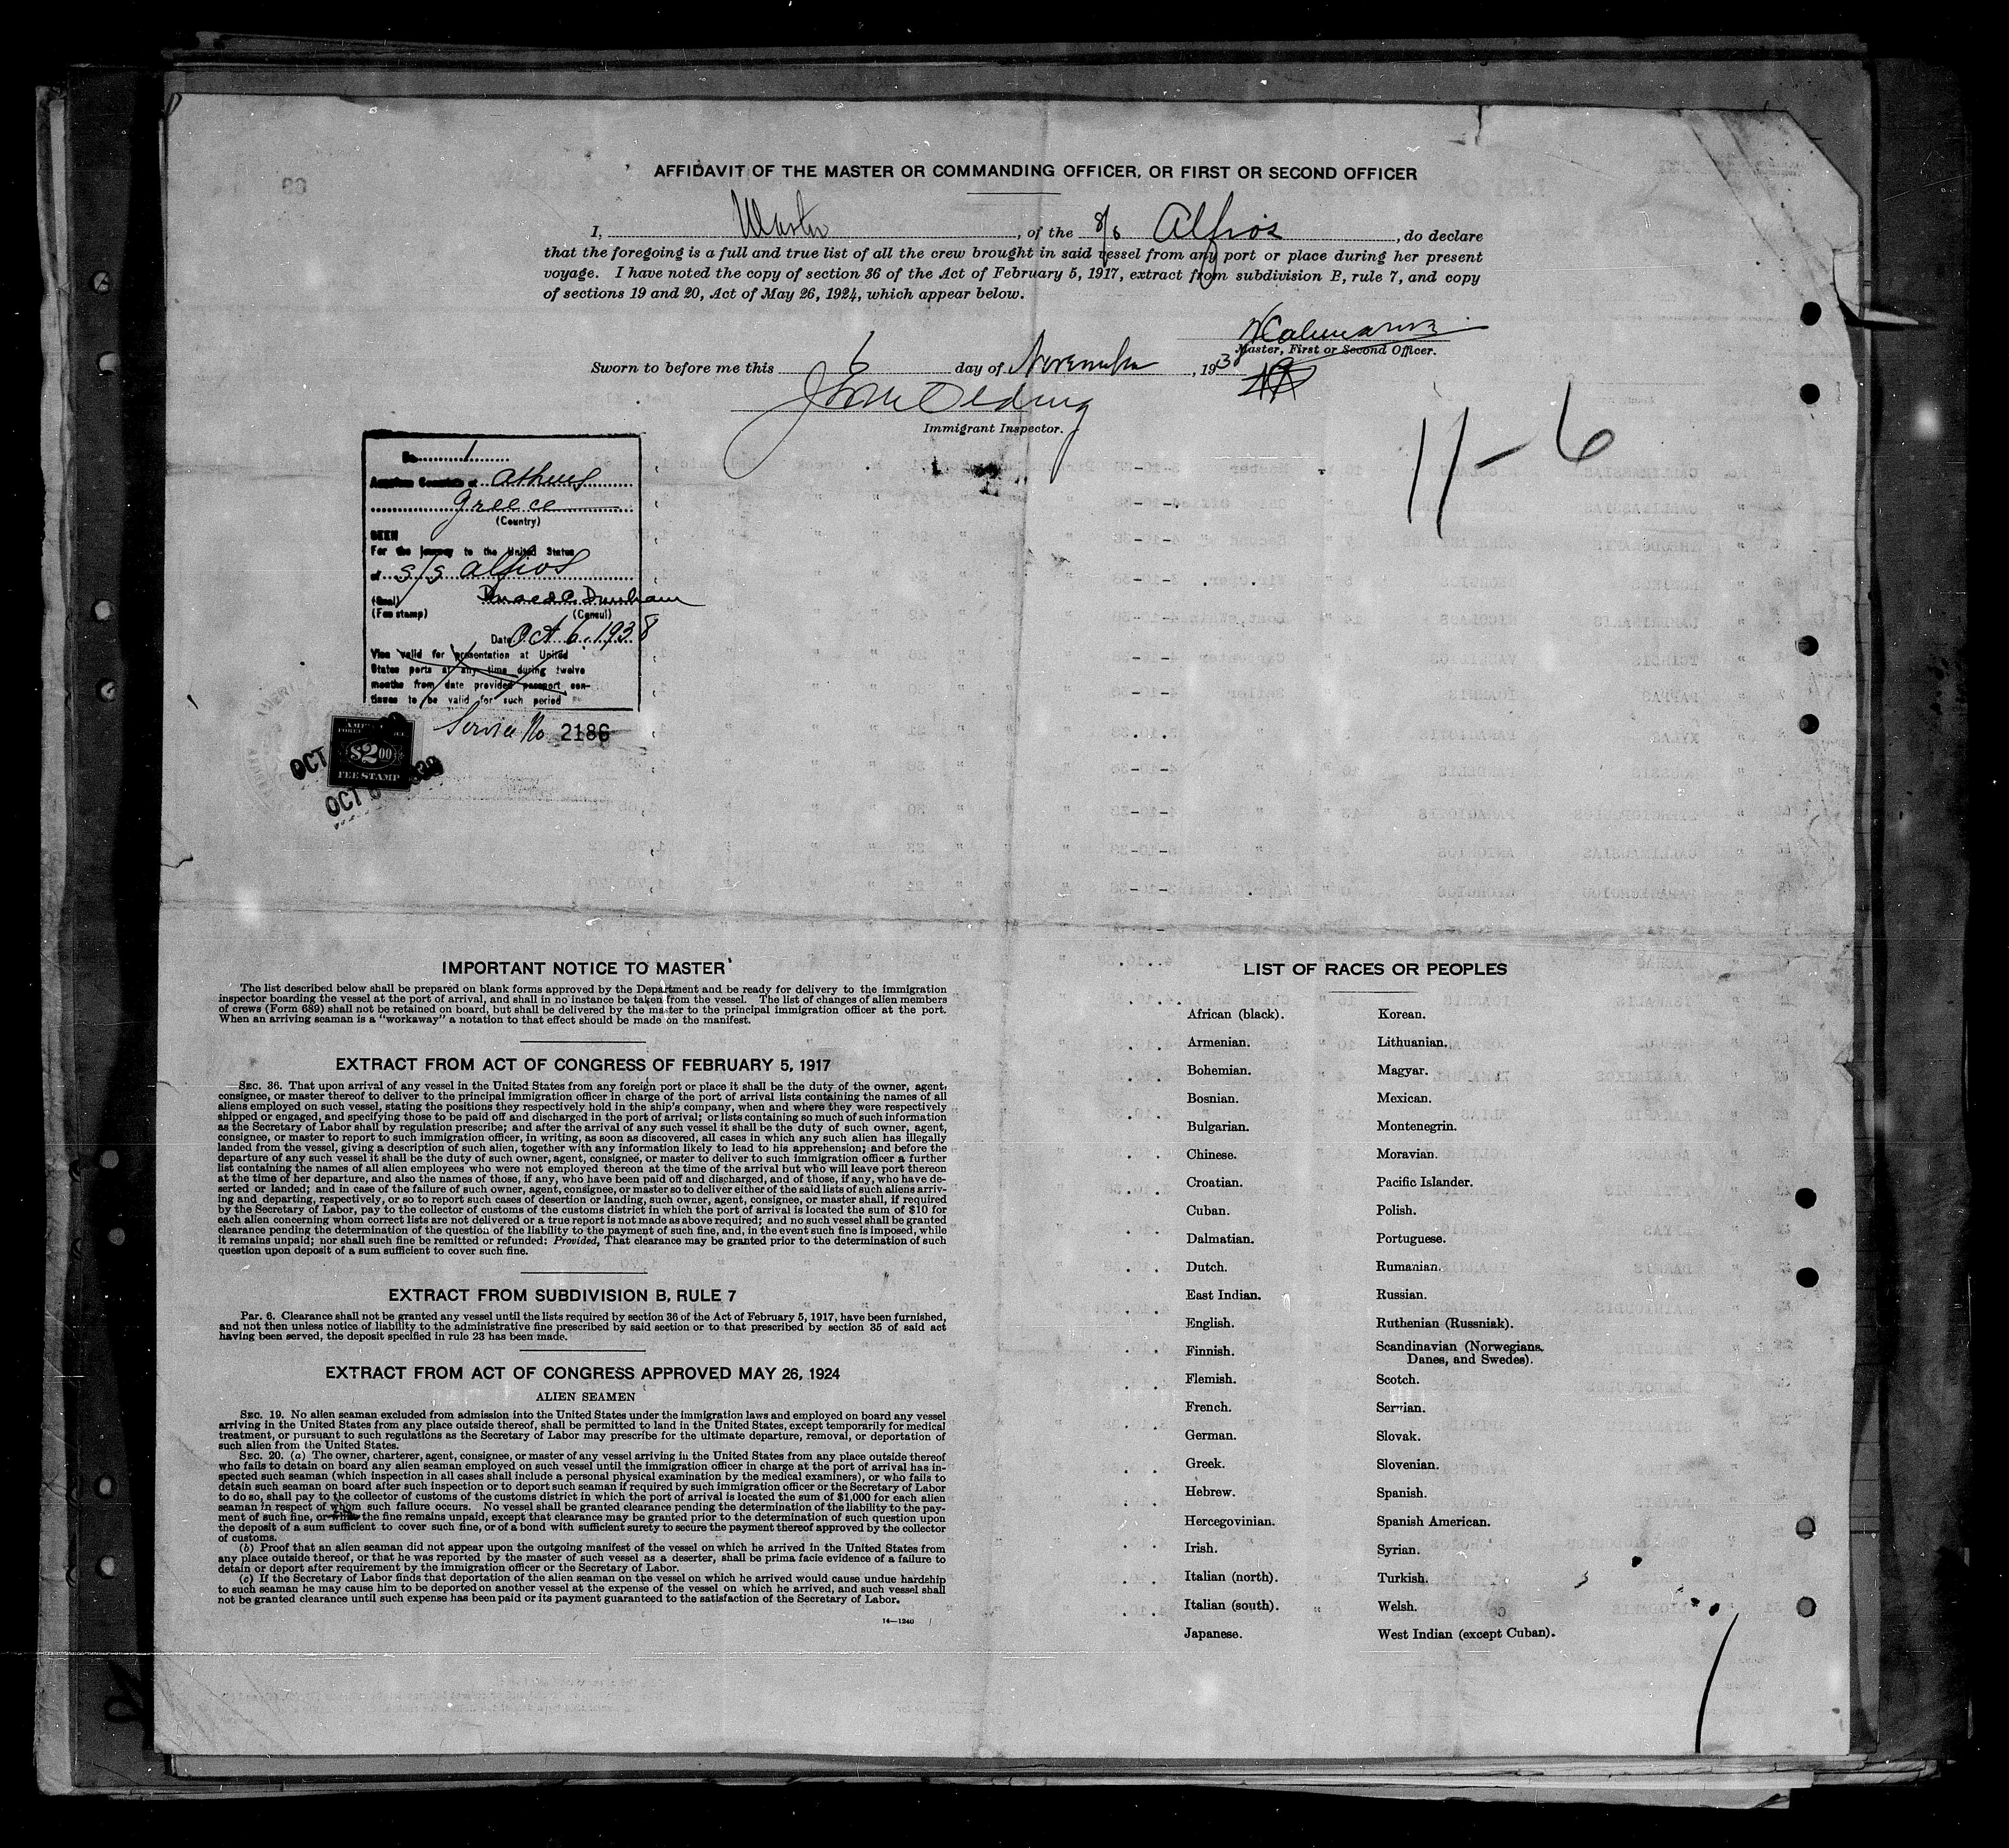 AFFIDAVIT OF THE MASTER OR COMMANDING OFFICER, OR FIRST OR SECOND OFFICER
I, Master, of the S/S Alfios, do declare
that the foregoing is a full and true list of all the crew brought in said vessel from any port or place during her present
voyage. I have noted the copy of section 36 of the Act of February 5, 1917, extract from subdivision B, rule 7, and copy
of sections 19 and 20, Act of May 26, 1924, which appear below.
Master, First or Second Officer.
Sworn to before me this 6 day of November, 193
Immigrant Inspector.
11-6
No. 1
American Consulate at Athens
Greece
(Country)
SEEN
For the journey to the United States
of S/S Alfios
(Seal)
(Fee stamp) (Consul)
Date Oct 6, 1938
Visa valid for presentation at United
States ports at any time during twelve
months from date provided passport con-
tinues to be valid for such period
Service No 2186
$2.00
FEE STAMP
OCT
OCT 6
IMPORTANT NOTICE TO MASTER
The list described below shall be prepared on blank forms approved by the Department and be ready for delivery to the immigration
inspector boarding the vessel at the port of arrival, and shall in no instance be taken from the vessel. The list of changes of alien members
of crews (Form 689) shall not be retained on board, but shall be delivered by the master to the principal immigration officer at the port.
When an arriving seaman is a "workaway" a notation to that effect should be made on the manifest.
EXTRACT FROM ACT OF CONGRESS OF FEBRUARY 5, 1917
SEC. 36. That upon arrival of any vessel in the United States from any foreign port or place it shall be the duty of the owner, agent,
consignee, or master thereof to deliver to the principal immigration officer in charge of the port of arrival lists containing the names of all
aliens employed on such vessel, stating the positions they respectively hold in the ship's company, when and where they were respectively
shipped or engaged, and specifying those to be paid off and discharged in the port of arrival; or lists containing so much of such information
as the Secretary of Labor shall by regulation prescribe; and after the arrival of any such vessel it shall be the duty of such owner, agent,
consignee, or master to report to such immigration officer, in writing, as soon as discovered, all cases in which any such alien has illegally
landed from the vessel, giving a description of such alien, together with any information likely to lead to his apprehension; and before the
departure of any such vessel it shall be the duty of such owner, agent, consignee, or master to deliver to such immigration officer a further
list containing the names of all alien employees who were not employed thereon at the time of the arrival but who will leave port thereon
at the time of her departure, and also the names of those, if any, who have been paid off and discharged, and of those, if any, who have de-
serted or landed; and in case of the failure of such owner, agent, consignee, or master so to deliver either of the said lists of such aliens arriv-
ing and departing, respectively, or so to report such cases of desertion or landing, such owner, agent, consignee, or master shall, if required
by the Secretary of Labor, pay to the collector of customs of the customs district in which the port of arrival is located the sum of $10 for
each alien concerning whom correct lists are not delivered or a true report is not made as above required; and no such vessel shall be granted
clearance pending the determination of the question of the liability to the payment of such fine, and, in the event such fine is imposed, while
it remains unpaid; nor shall such fine be remitted or refunded: Provided, That clearance may be granted prior to the determination of such
question upon deposit of a sum sufficient to cover such fine.
EXTRACT FROM SUBDIVISION B, RULE 7
Par. 6. Clearance shall not be granted any vessel until the lists required by section 36 of the Act of February 5, 1917, have been furnished,
and not then unless notice of liability to the administrative fine prescribed by said section or to that prescribed by section 35 of said act
having been served, the deposit specified in rule 23 has been made.
EXTRACT FROM ACT OF CONGRESS APPROVED MAY 26, 1924
ALIEN SEAMEN
SEC. 19. No alien seaman excluded from admission into the United States under the immigration laws and employed on board any vessel
arriving in the United States from any place outside thereof, shall be permitted to land in the United States, except temporarily for medical
treatment, or pursuant to such regulations as the Secretary of Labor may prescribe for the ultimate departure, removal, or deportation of
such alien from the United States.
SEC. 20. (a) The owner, charterer, agent, consignee, or master of any vessel arriving in the United States from any place outside thereof
who fails to detain on board any alien seaman employed on such vessel until the immigration officer in charge at the port of arrival has in-
spected such seaman (which inspection in all cases shall include a personal physical examination by the medical examiners), or who fails to
detain such seaman on board after such inspection or to deport such seaman if required by such immigration officer or the Secretary of Labor
to do so, shall pay to the collector of customs of the customs district in which the port of arrival is located the sum of $1,000 for each alien
seaman in respect of whom such failure occurs. No vessel shall be granted clearance pending the determination of the liability to the pay-
ment of such fine, or while the fine remains unpaid, except that clearance may be granted prior to the determination of such question upon
the deposit of a sum sufficient to cover such fine, or of a bond with sufficient surety to secure the payment thereof approved by the collector
of customs.
(b) Proof that an alien seaman did not appear upon the outgoing manifest of the vessel on which he arrived in the United States from
any place outside thereof, or that he was reported by the master of such vessel as a deserter, shall be prima facie evidence of a failure to
detain or deport after requirement by the immigration officer or the Secretary of Labor.
(c) If the Secretary of Labor finds that deportation of the alien seaman on the vessel on which he arrived would cause undue hardship
to such seaman he may cause him to be deported on another vessel at the expense of the vessel on which he arrived, and such vessel shall
not be granted clearance until such expense has been paid or its payment guaranteed to the satisfaction of the Secretary of Labor.
14—1240
LIST OF RACES OR PEOPLES
African (black). Korean.
Armenian. Lithuanian.
Bohemian. Magyar.
Bosnian. Mexican.
Bulgarian. Montenegrin.
Chinese. Moravian.
Croatian. Pacific Islander.
Cuban. Polish.
Dalmatian. Portuguese.
Dutch. Rumanian.
East Indian. Russian.
English. Ruthenian (Russniak).
Finnish. Scandinavian (Norwegians,
Danes, and Swedes).
Flemish. Scotch.
French. Servian.
German. Slovak.
Greek. Slovenian.
Hebrew. Spanish.
Hercegovinian. Spanish American.
Irish. Syrian.
Italian (north). Turkish.
Italian (south). Welsh.
Japanese. West Indian (except Cuban).